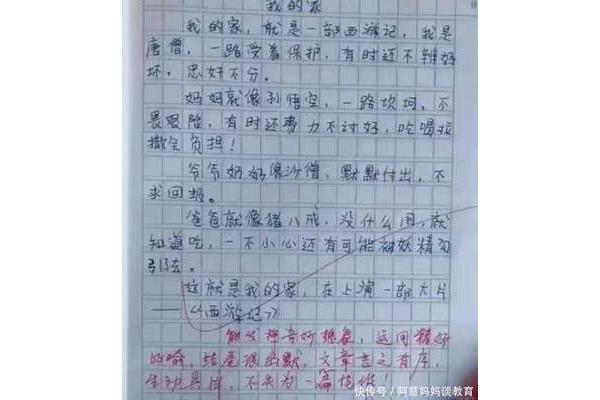 我的家
我的家，就是一部西游记，我是
唐僧，一路受着保护，有时还不辨好
坏，忠奸不分。
妈妈就像孙悟空，一路坎坷，不
畏艰险，有时还费力不讨好，吃喝拉
撒全负担！
爷爷奶奶像沙僧，默默付出，不
求回报。
爸爸就像猪八戒，没什么用，就
知道吃，一不小心还有可能被妖精勾
引去。
这就是我的家，在上演一部大片
——《西游记》
能发挥奇妙想象，运用精妙
比喻，结尾很幽默，文章言之有序，
生动具体，不失为一篇佳作
快传号/阿慧妈妈谈教育